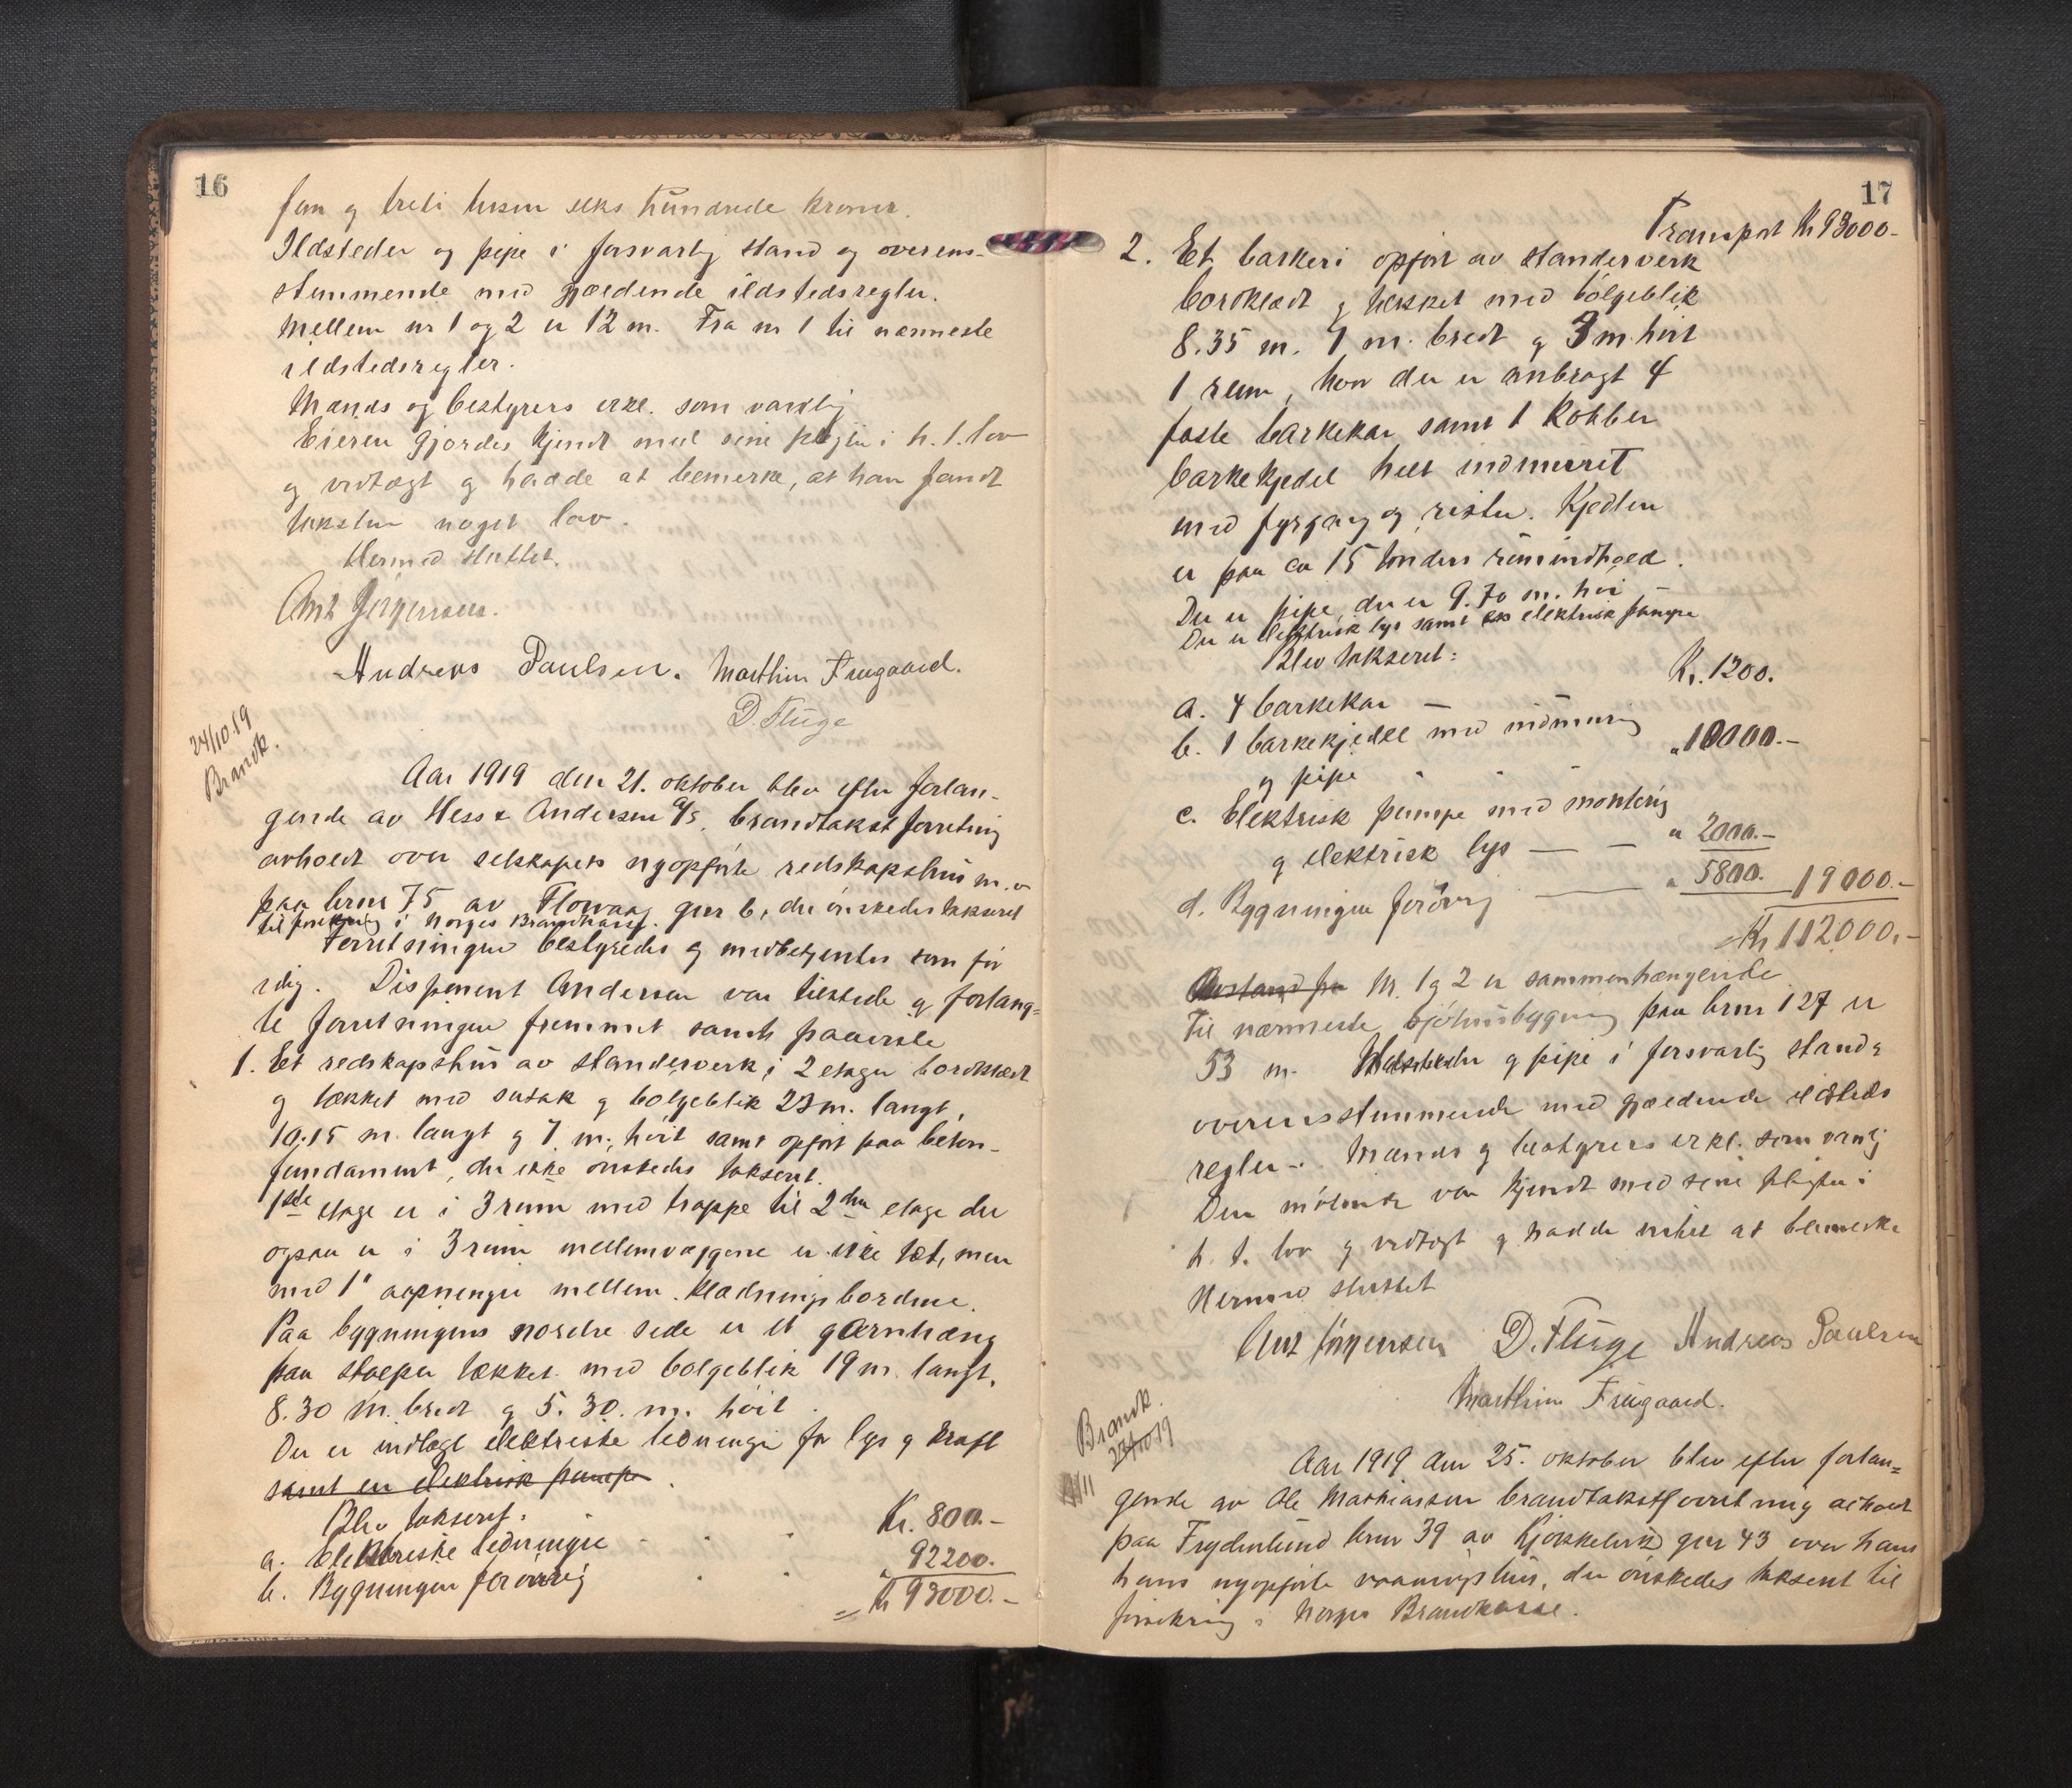 16
fem og treti tusen seks hundrede kroner.
Ildsteder og pipe i forsvarlig stand og overens-
stemmende med gjældende ildstedsregler.
Mellem nr 1 og 2 er 12 m. Fra nr 1 til nærmeste
ildstedsregler.
Mænds og bestyrers erkl. som vanlig
Eieren gjordes kjendt med sine pligter i h. t. lov
og vedtægt og hadde at bemerke, at han fandt
taksten noget lav.
Hermed sluttet.
Amt Jørgensen.
Andreas Paulsen. Marthin Frugaard.
D. Fluge
24/10.19
Brandk.
Aar 1919 den 21. oktober blev efter forlan-
gende av Hess & Andersen A/S. brandtakstforretning
avholdt over selskapets nyopførte redskapshus m.v
paa brnr 75 av Florvaag gnr 6, der ønskedes taksert
til forsikring i Norges Brandkasse.
Forretningen bestyredes og medbetjentes som før
idag. Disponent Andersen var tilstede og forlang-
te forretningen fremmet samt paaviste
1. Et redskapshus av standerverk i 2 etager bordklædt
og tækket med sutak og bølgeblik 23 m. langt,
10.15 m. langt og 7 m. høit samt opført paa beton-
fundament, der ikke ønskedes taksert.
1ste etage er i 3 rum med trappe til 2den etage der
ogsaa er i 3 rum mellemvæggene er ikke tæt, men
med 1" aapninger mellem klædningsbordene.
Paa bygningens nordre side er et garnhæng
paa stolper tækket med bølgeblik 19 m. langt,
8.30 m. bredt og 5.30. m. høit.
Der er indlagt elektriske ledninger for lys og kraft
samt en elektrisk pumpe.
Blev taksert:
a. Elektriske ledninger - - - Kr. 800.-
b. Bygningen forøvrig - - " 92200.
= Kr 93000.-
17
Transport Kr 93000-
2. Et barkeri opført av standerverk
bordklædt og tækket med bølgeblik
8.35 m. 7 m. bredt og 3 m. høit
1 rum, hvor der er anbragt 4
faste barkekar samt 1 kobber
barkekjedel helt indmuret
med fyrgang og rister. Kjedlen
er paa ca 15 tønders rumindhold.
Der er pipe der er 9.70 m. høi -
Der er elektrisk lys samt en elektrisk pumpe
Blev taksert:
a. 4 barkekar - Kr. 1200.
b. 1 barkekjedel med indmuring
og pipe - - - " 10000.-
c. Elektrisk pumpe med montering
og elektrisk lys - - " 2000.-
d. Bygningen forøvrig - " 5800. 19000.-
Kr 112000.-
Avstand fra Nr. 1 og 2 er sammenhængende
Til nærmeste sjøhusbygning paa brnr 127 er
53 m. Ildsteder og pipe i forsvarlig stand og
overensstemmende med gjældende ildsteds
regler. Mænds og bestyrers erkl. som vanlig
Den møtende var kjendt med sine pligter i
h. t. lov og vedtægt og hadde intet at bemerke
Hermed sluttet
Amt Jørgensen D. Fluge Andreas Paulsen
Marthin Frugaard.
Brandk.
Aar 1919 den 25. oktober blev efter forlan-
gende av Ole Mathiassen brandtakstforretning avholdt
paa Frydenlund brnr 39 av Kjøkkelvik gnr 43 over hans
hans nyopførte vaaningshus, der ønskedes taksert til
forsikring i Norges Brandkasse.